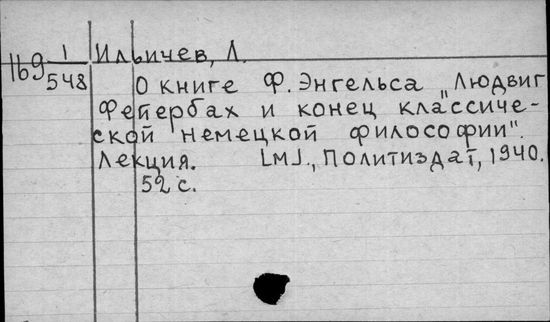 169 1/548
Ильичев, Л.
О книге Ф. Энгельса „Людвиг
Фейербах и конец классиче-
ской немецкой философии".
Лекция. [М]., Политиздат, 1940.
52 с.